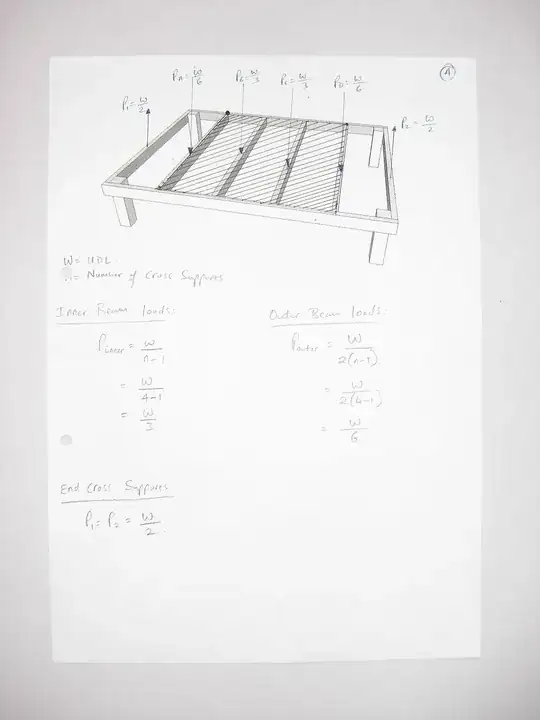 A
P_A = W/6
P_B = W/3
P_C = W/3
P_D = W/6
P_1 = W/2
P_2 = W/2
W = UDL
n = Number of Cross Supports
Inner Beam loads:
P_inner = W/(n-1)
= W/(4-1)
= W/3
Outer Beam loads:
P_outer = W/(2(n-1))
= W/(2(4-1))
= W/6
End Cross Supports
P_1 = P_2 = W/2